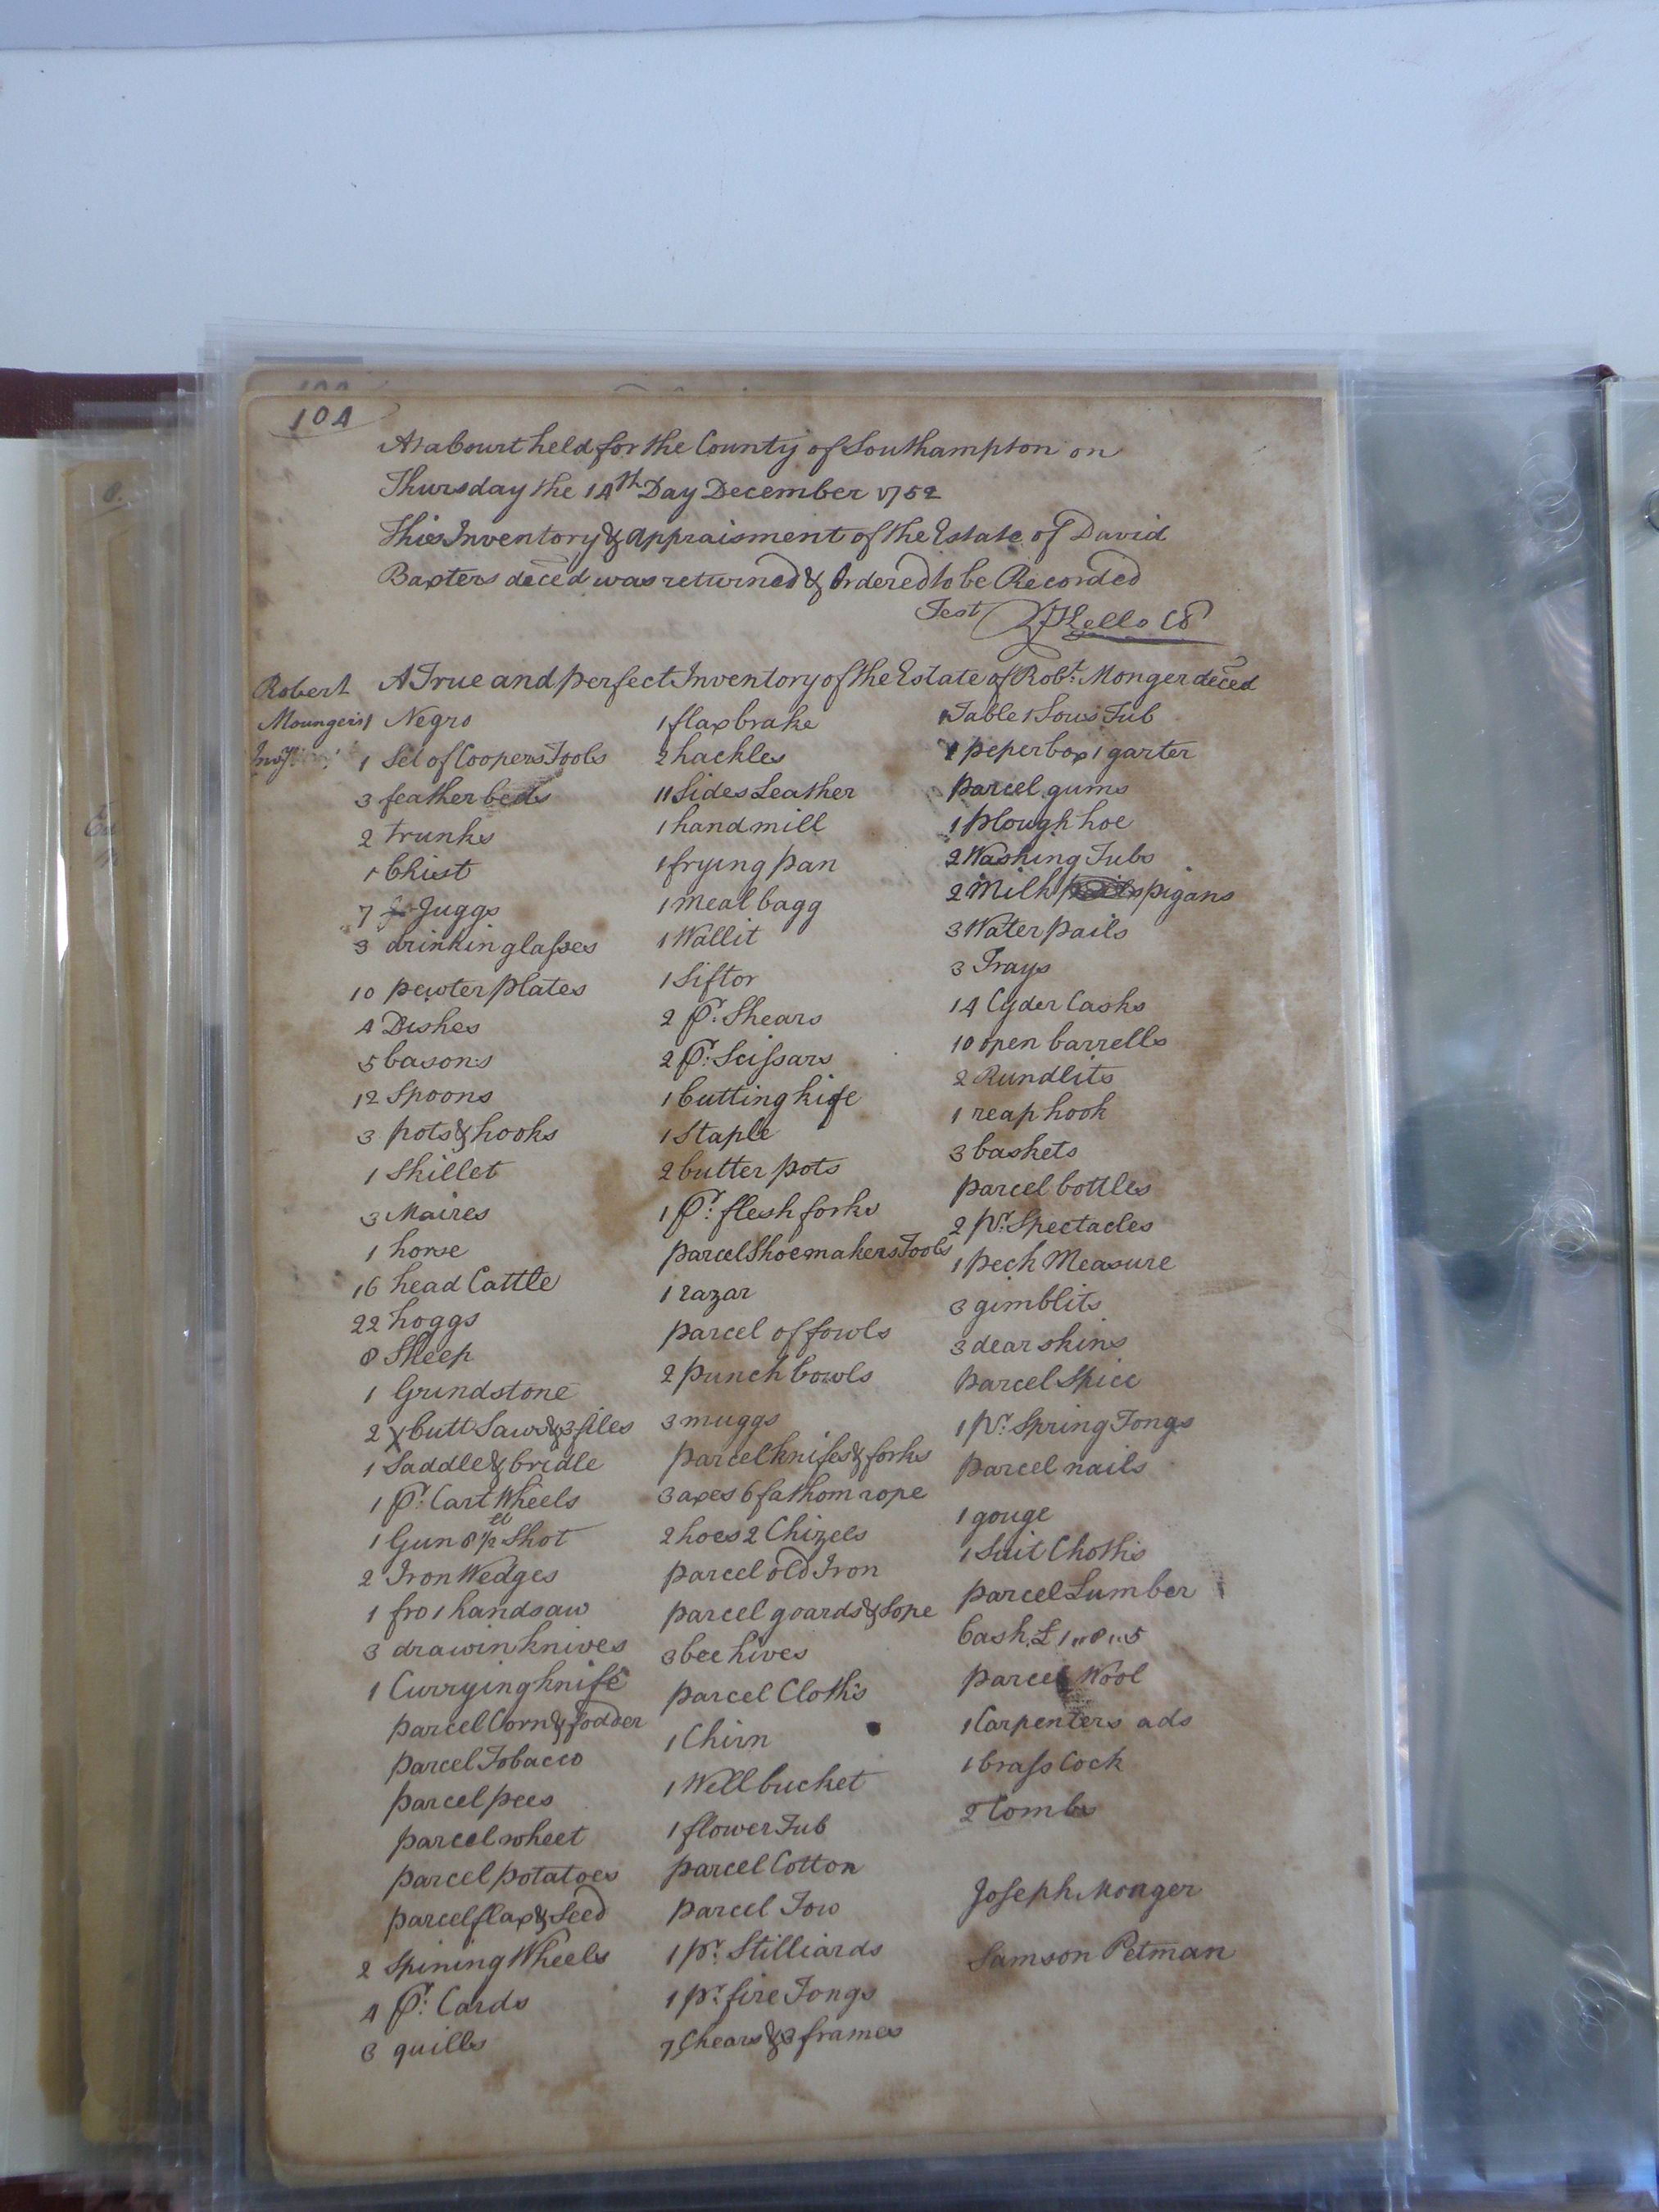 104
At a Court held for the County of Southampton on
Thursday the 14th Day December 1752
This Inventory & Appraisment of the Estate of David
Baxters deced was returned & Ordered to be Recorded
Test
Robert
Moungers
A True and perfect Inventory of the Estate of Robt. Monger deced
1 Negro
1 Set of Coopers Tools
3 feather beds
2 trunks
1 Chist
7 Juggs
3 drinkin glasses
10 pewter plates
4 Dishes
5 basons
12 Spoons
3 pots & hooks
1 Skillet
3 Maires
1 horse
16 head Cattle
22 hoggs
8 Sheep
1 Grindstone
2 X Cutt Saws & 3 files
1 Saddle & bridle
1 Pr. Cart Wheels
1 Gun 8 1/2 lb Shot
2 Iron Wedges
1 fro 1 handsaw
3 drawin knives
1 Currying knife
parcel Corn & fodder
parcel Tobacco
parcel pees
parcel wheet
parcel potatoes
parcel flax & Seed
2 Spining Wheels
4 Pr. Cards
3 quills
1 flax brake
2 hackles
11 Sides Leather
1 hand mill
1 frying pan
1 meal bagg
1 Wallit
1 Siftor
2 Pr. Shears
2 Pr. Scissars
1 Cutting kife
1 Staple
2 butter pots
1 Pr. flesh forks
parcel Shoemakers Tools
1 razar
parcel of fowls
2 punch bowls
3 muggs
parcel knifes & forks
3 axes 6 fathom rope
2 hoes 2 Chizels
parcel old Iron
parcel goards & Sope
3 bee hives
parcel Cloth's
1 Chirn
1 Well bucket
1 flower Tub
parcel Cotton
parcel Tow
1 pr. Stilliards
1 pr. fire Tongs
7 Chears & 3 frames
1 Table 1 Sous Tub
1 peper box 1 garter
parcel gums
1 plough hoe
2 Washing Tubs
2 Milk pigans
3 Water pails
3 Trays
14 Cyder Casks
10 open barrells
2 Rundlits
1 reap hook
3 baskets
parcel bottles
2 pr. Spectacles
1 peck Measure
3 gimblits
3 dear skins
parcel Spice
1 pr. Spring Tongs
parcel nails
1 gouge
1 Suit Cloth's
parcel Lumber
Cash £ 1 " 8 " 5
parcel Wool
1 Carpenters ads
1 brass Cock
2 Combs
Joseph Monger
Samson Petman